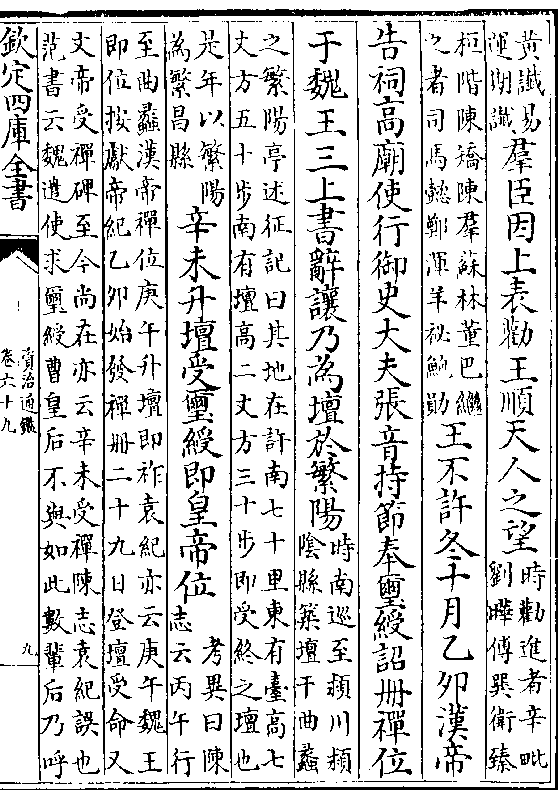 黃讖易
運期讖
羣臣因上表勸王順天人之望
時勸進者辛毗
劉曄傅巽衛臻
桓階陳矯陳羣蘇林董巴繼
之者司馬懿鄭渾羊祕鮑勛
王不許冬十月乙卯漢帝
告祠高廟使行御史大夫張音持節奉璽綬詔冊禪位
于魏王三上書辭讓乃為壇於繁陽
時南巡至潁川潁
陰縣築壇于曲蠡
之繁陽亭述征記曰其地在許南七十里東有臺高七
丈方五十步南有壇高二丈方三十步即受終之壇也
是年以繁陽
為繁昌縣
辛未升壇受璽綬即皇帝位
考異曰陳
志云丙午行
至曲蠡漢帝禪位庚午升壇即祚袁紀亦云庚午魏王
即位按獻帝紀乙卯始發禪冊二十九日登壇受命又
文帝受禪碑至今尚在亦云辛未受禪陳志袁紀誤也
范書云魏遣使求璽綬曹皇后不與如此數輩后乃呼
欽定四庫全書
資治通鑑
卷六十九
九